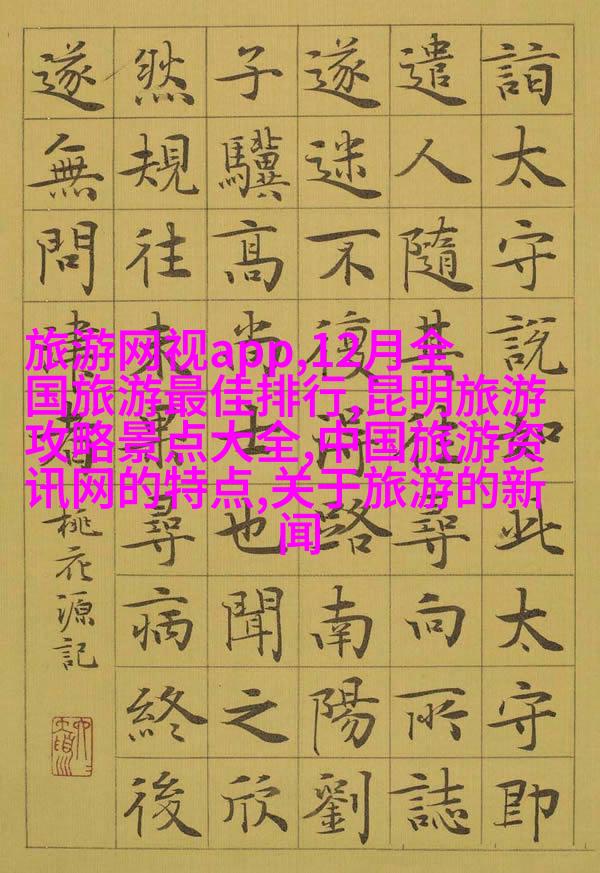 詣太守說如此太守即
遣人隨其往尋向所誌
遂迷不復得路南陽劉
子驥髙尚士也聞之欣
然規往未果尋病終後
遂無問津者
桃花源記
旅游网视app,12月全
国旅游最佳排行,昆明旅游
攻略景点大全,中国旅游资
讯网的特点,关于旅游的新
闻